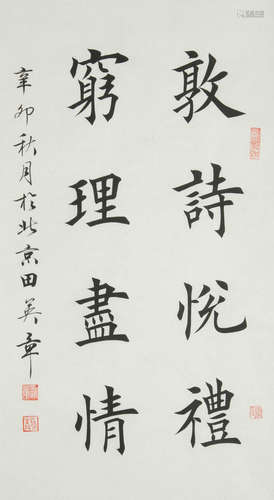 敦詩悅禮
窮理盡情
辛卯秋月於北京田英章